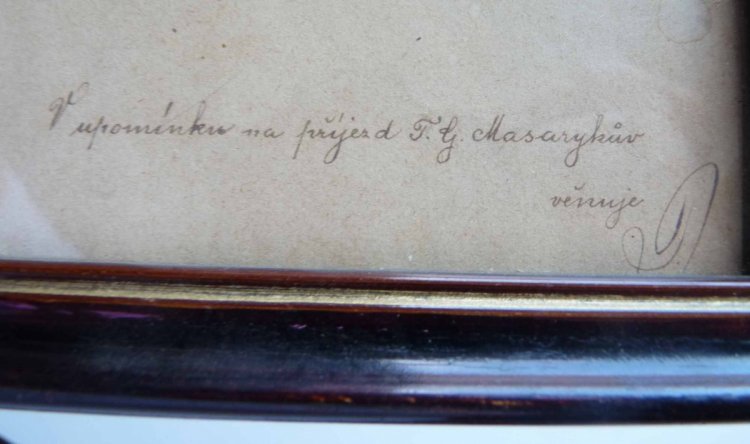 V upomínku na příjezd T. G. Masarykův
věnuje